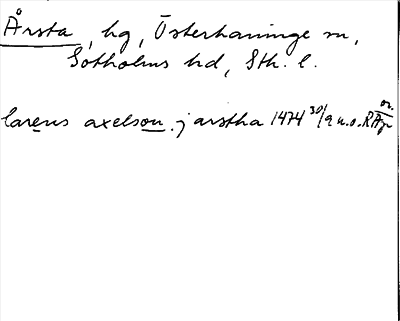 Årsta, hg, Österhaninge sn,
Sotholms hd, Sth. l.
or.
larens axelson j arstha 1474 30/9 u.o. RAp